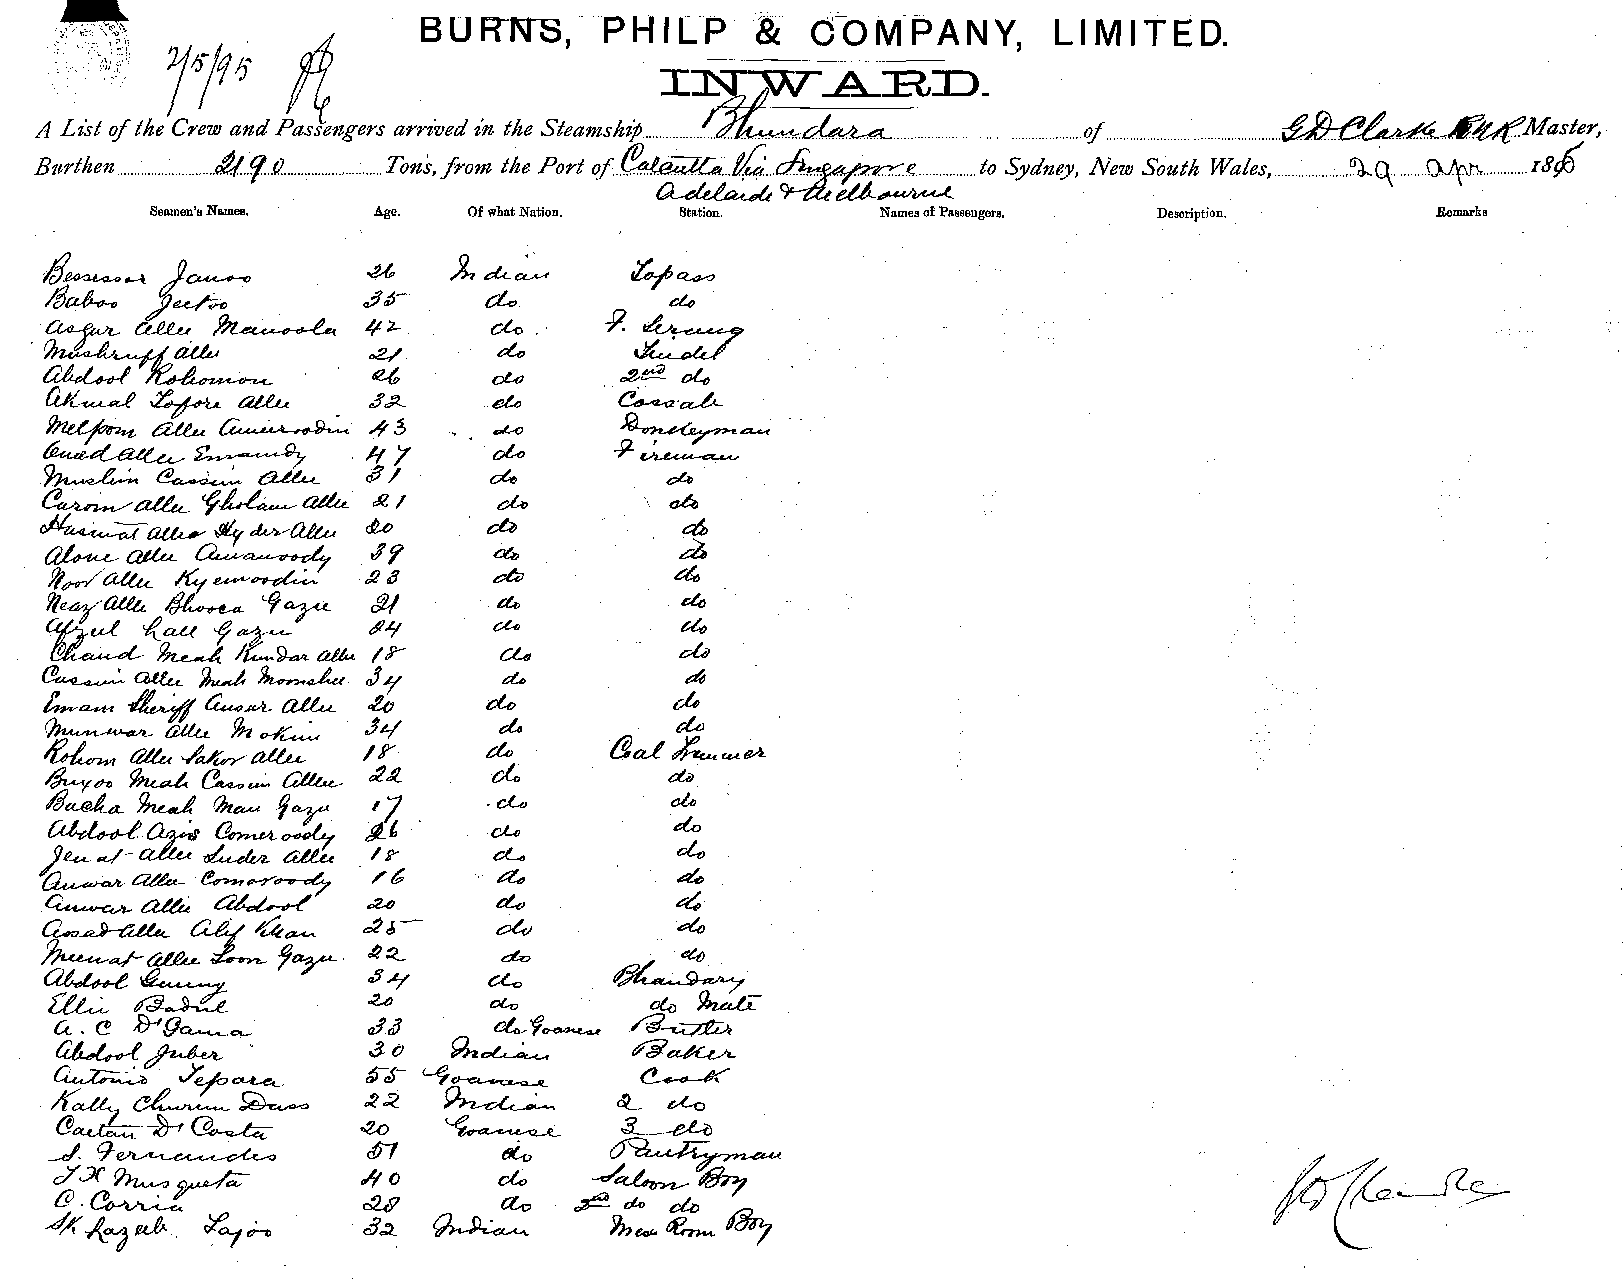 BURNS, PHILP & COMPANY, LIMITED.
2/5/95
INWARD.
A List of the Crew and Passengers arrived in the Steamship Bhundara of G D Clarke RNR Master,
Burthen 2190 Tons, from the Port of Calcutta Via Singapore to Sydney, New South Wales, 29 Apr 1895
Adelaide & Melbourne
Seamen's Names. Age. Of what Nation. Station. Names of Passengers. Description. Remarks
Bessessor Janoo 26 Indian Topass
Baboo Jeetoo 35 do do
Asgur Allee Manoola 42 do F. Serang
Mushruff Allee 21 do Tindel
Abdool Rohomon 26 do 2nd do
Akmal Tofore Allee 32 do Cassab
Melpom Allee Ameeroodin 43 do Donkeyman
Omed Allee Emamdy 47 do Fireman
Muslim Cassim Allee 31 do do
Carom Allee Gholam Allee 21 do do
Husmat Allee Hyder Allee 20 do do
Alone Allee Amanoody 39 do do
Noor Allee Kyemoodin 23 do do
Neaz Allee Bhooea Gazee 21 do do
Afzul Lall Gazee 24 do do
Chand Meah Kundar Allee 18 do do
Cassim Allee Meah Moonshee 34 do do
Emam Sheriff Ansur Allee 20 do do
Munwar Allee Mokim 34 do do
Rohom Allee Sakor Allee 18 do Coal Trimmer
Buxoo Meah Cassim Allee 22 do do
Bacha Meah Man Gazee 17 do do
Abdool Azis Comeroody 26 do do
Jenat Allee Suder Allee 18 do do
Anwar Allee Comoroody 16 do do
Anwar Allee Abdool 20 do do
Assad Allee Alif Khan 25 do do
Meenat Allee Toon Gazee 22 do do
Abdool Gunny 34 do Bhandary
Ellu Badul 20 do do Mate
A. C D'Gama 33 do Goanese Butler
Abdool Juber 30 Indian Baker
Antonio Tepara 55 Goanese Cook
Kally Churun Dass 22 Indian 2 do
Caetan D'Costa 20 Goanese 3 do
S. Fernandes 51 do Pantryman
J X Musqueta 40 do Saloon Boy
C. Corria 28 do 2nd do do
Sk Lazeeb Tajoo 32 Indian Mess Room Boy
G D Clarke